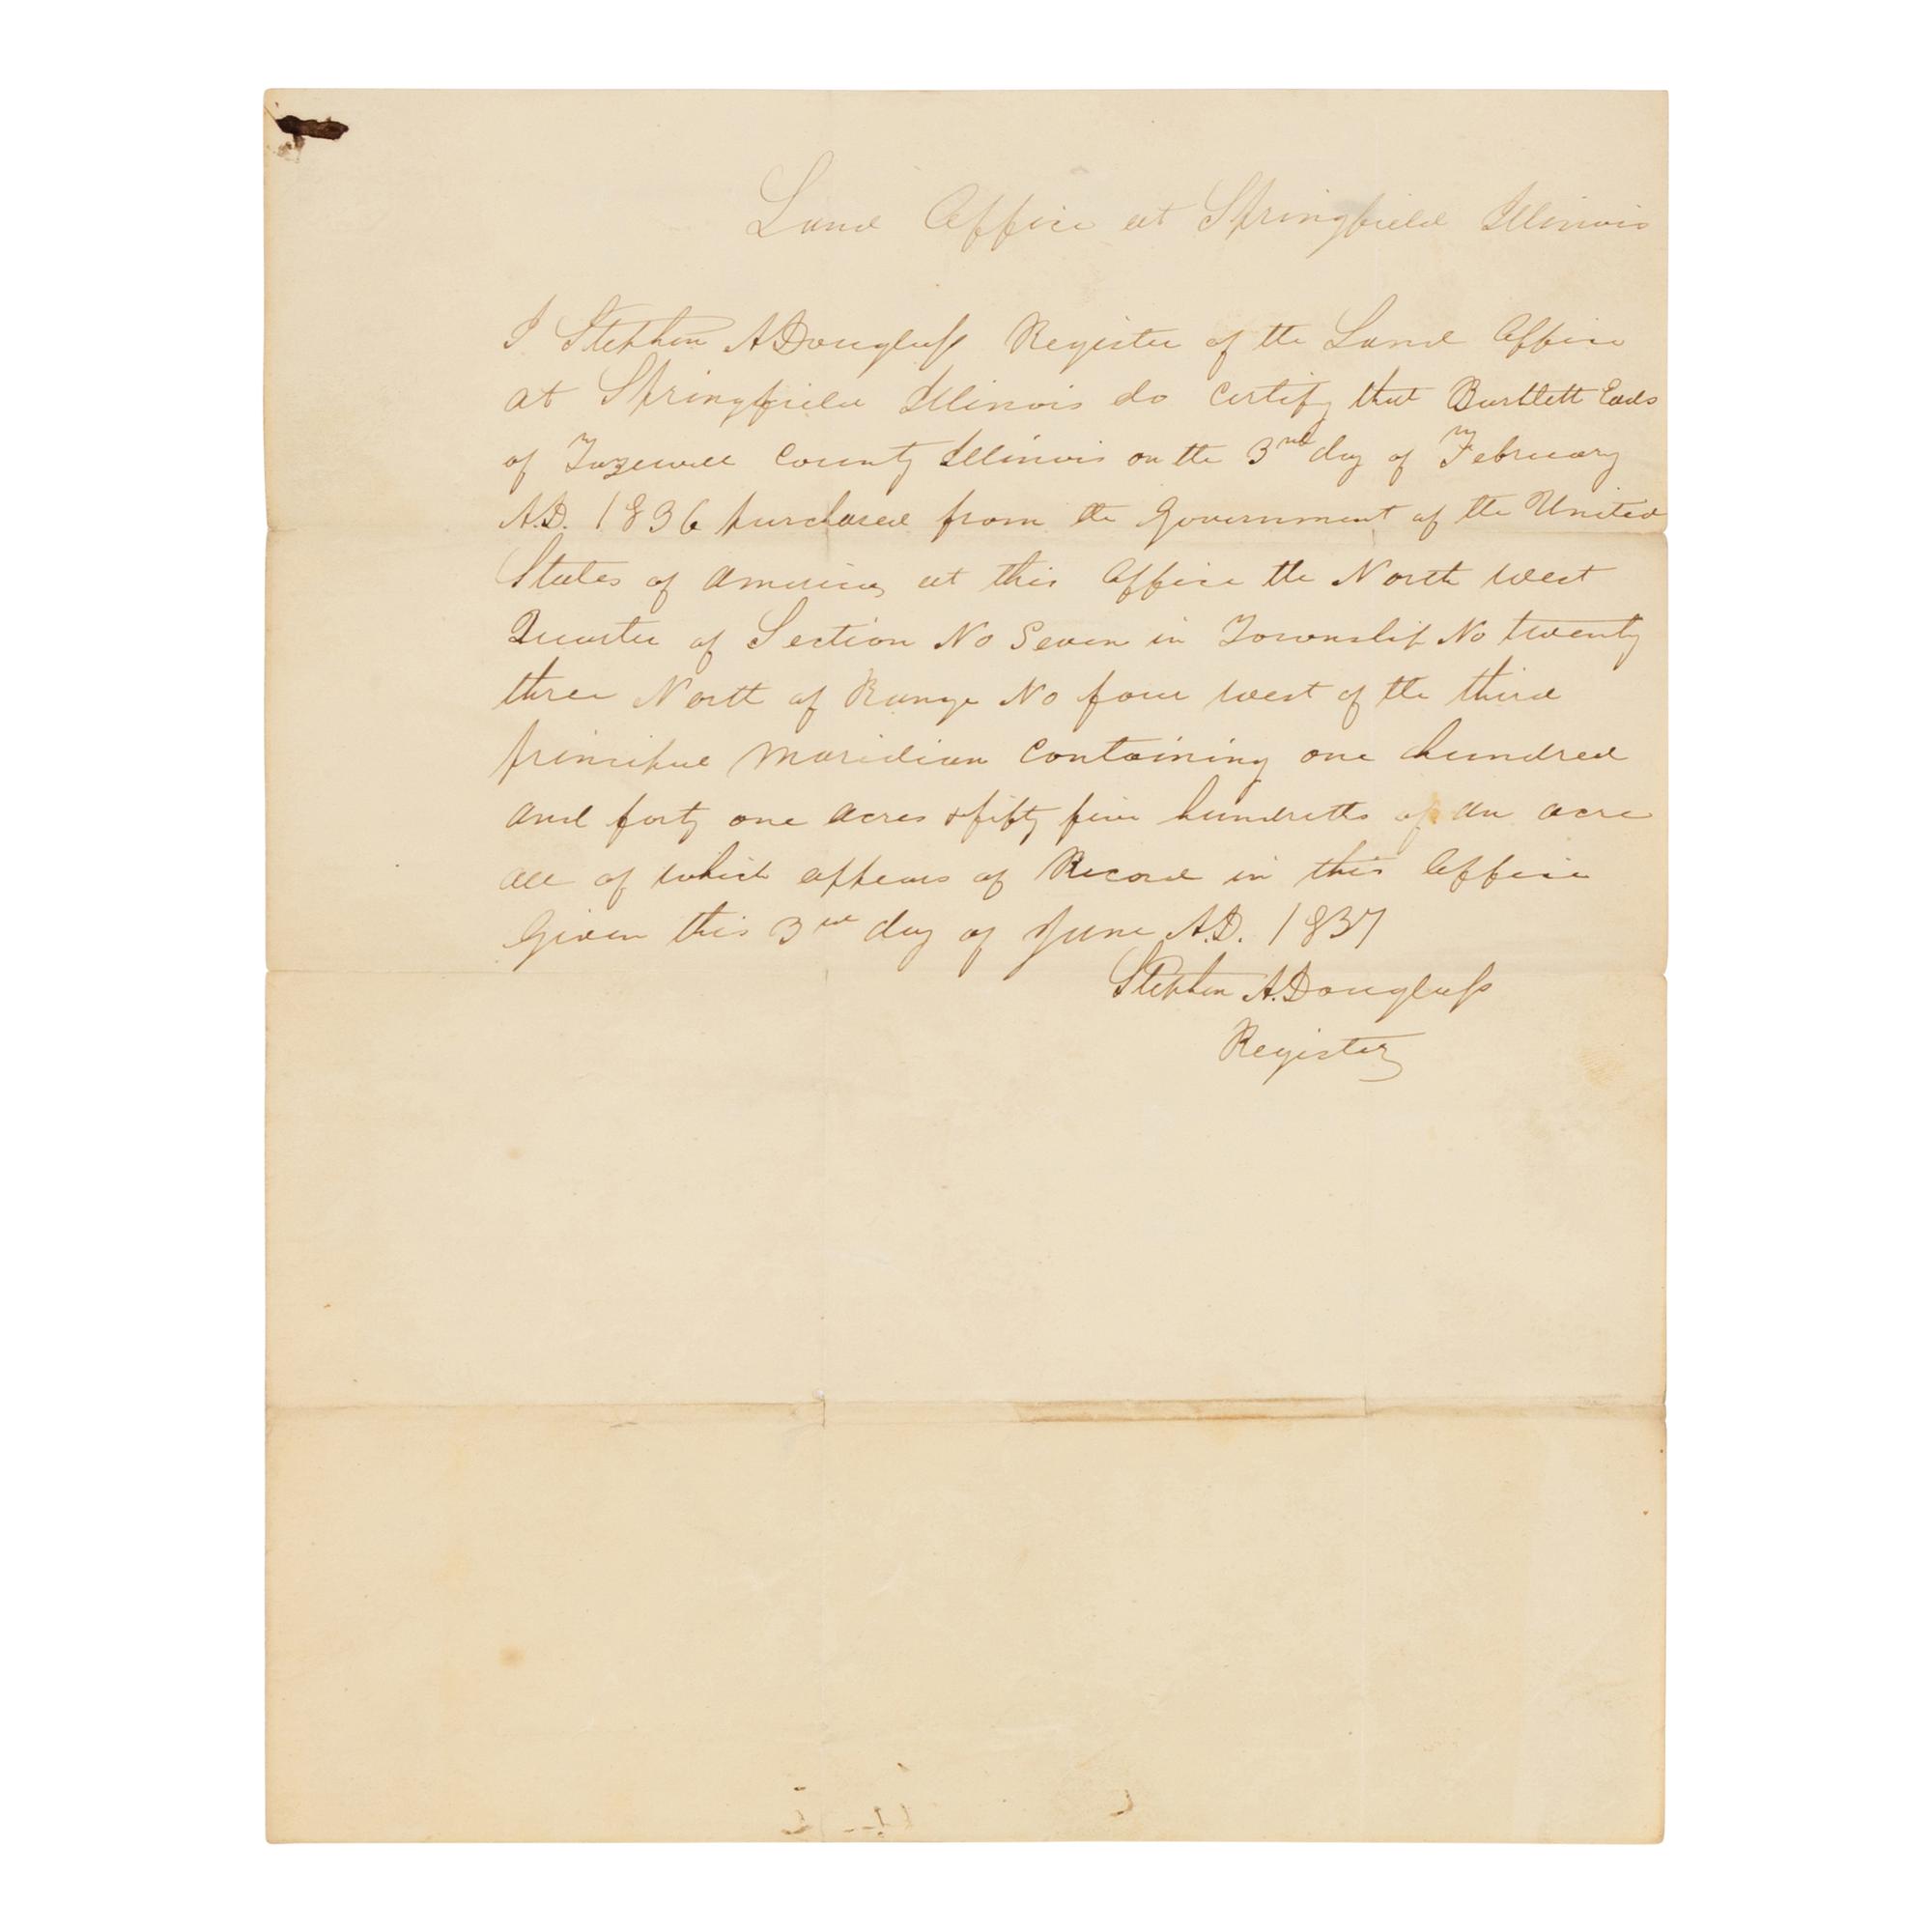 Land Office at Springfield Illinois
I Stephen A Douglass Register of the Land Office
at Springfield Illinois do certify that Bartlett Eads
of Tazewell County Illinois on the 3rd day of February
A.D. 1836 purchased from the Government of the United
States of America at this Office the North West
Quarter of Section No Seven in Township No twenty
three North of Range No four West of the third
principal Maridian Containing one hundred
and forty one acres & fifty five hundreths of an acre
all of which appears of Record in this Office
Given this 3rd day of June A.D. 1837
Stephen A. Douglass
Register